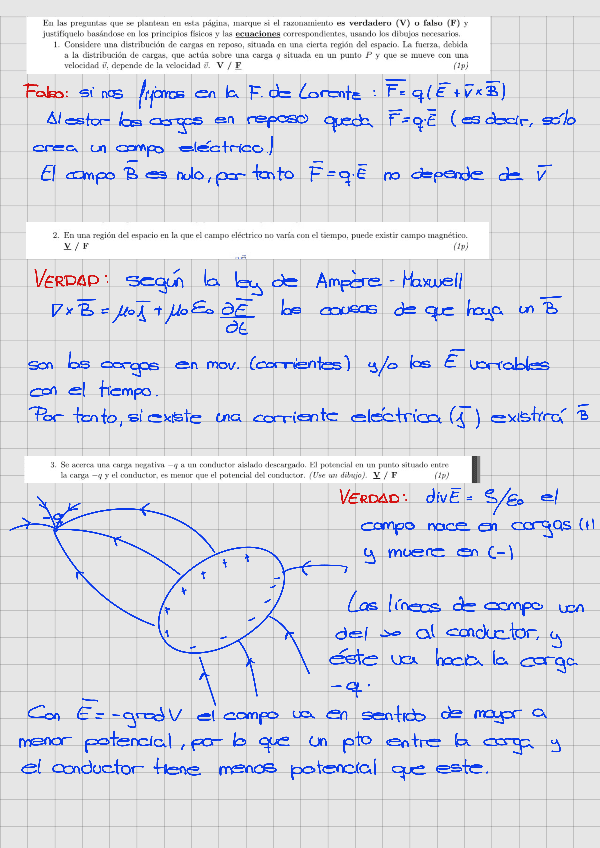 En las preguntas que se plantean en esta página, marque si el razonamiento es verdadero (V) o falso (F) y
justifíquelo basándose en los principios físicos y las ecuaciones correspondientes, usando los dibujos necesarios.
1. Considere una distribución de cargas en reposo, situada en una cierta región del espacio. La fuerza, debida
a la distribución de cargas, que actúa sobre una carga q situada en un punto P y que se mueve con una
velocidad v⃗, depende de la velocidad v⃗. V / F (1p)
Falso: si nos fijamos en la F. de Lorente : F̅ = q(E̅ + v̅ x B̅)
Al estar las cargas en reposo queda F̅=q·E̅ (es decir, sólo
crea un campo eléctrico)
El campo B̅ es nulo, por tanto F̅=q·E̅ no depende de v̅
2. En una región del espacio en la que el campo eléctrico no varía con el tiempo, puede existir campo magnético.
V / F (1p)
VERDAD: según la ley de Ampère - Maxwell
∇ x B̅ = μ₀ j̅ + μ₀ ε₀ ∂E̅/∂t las causas de que haya un B̅
son las cargas en mov. (corrientes) y/o los E̅ variables
con el tiempo.
Por tanto, si existe una corriente eléctrica (j̅) existirá B̅
3. Se acerca una carga negativa −q a un conductor aislado descargado. El potencial en un punto situado entre
la carga −q y el conductor, es menor que el potencial del conductor. (Use un dibujo). V / F (1p)
VERDAD: div E̅ = ρ/ε₀ el
campo nace en cargas (+)
y muere en (-)
-q
+ + + + + + +
- - - - - -
Las líneas de campo van
del ∞ al conductor, y
éste va hacia la carga
-q.
Con E̅ = -grad V el campo va en sentido de mayor a
menor potencial, por lo que un pto entre la carga y
el conductor tiene menos potencial que este.